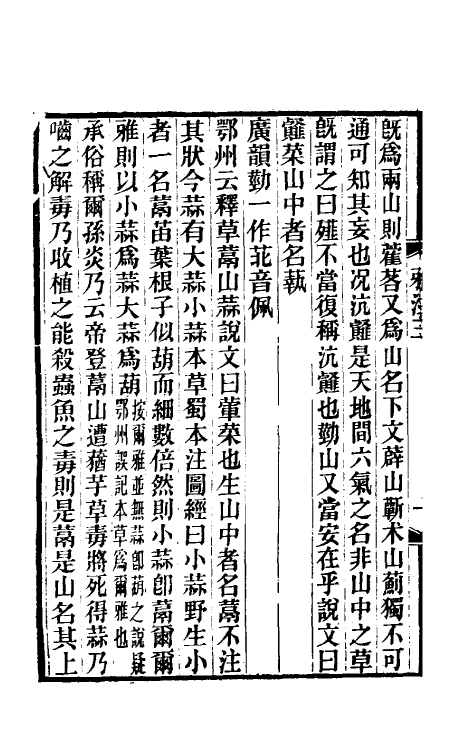 既爲兩山則藿莙又爲山名下文薜山蘄朮山薊獨不可
通可知其妄也况沆䪥是天地間六氣之名非山中之草
旣謂之曰䪥不當復稱沆䪥也葝山又當安在乎說文曰
䪥菜山中者名蓺
廣韻葝一作茈音佩
鄂州云釋草蒚山蒜說文曰葷菜也生山中者名蒚不注
其狀今蒜有大蒜小蒜本草蜀本注圖經曰小蒜野生小
者一名蒚苗葉根子似葫而細數倍然則小蒜卽蒚爾爾
雅則以小蒜爲蒜大蒜爲葫按爾雅並無蒜卽葫之說疑鄂州誤記本草爲爾雅也
承俗稱爾孫炎乃云帝登蒚山遭蕕芋草毒將死得蒜乃
嚙之解毒乃收植之能殺蟲魚之毒則是蒚是山名其上